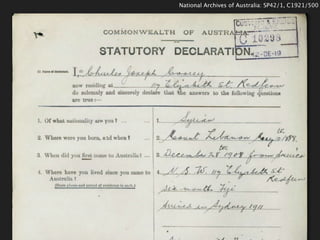 National Archives of Australia: SP42/1, C1921/500
COMMONWEALTH OF AUSTRALIA
C 10298
STATUTORY DECLARATION.
-DE-19
I, Charles Joseph
now residing at 119 Elizabeth St. Redfern
do solemnly and sincerely declare that the answers to the following questions
are true:—
1. Of what nationality are you? ... 1. Syrian
2. Where were you born, and when? ... 2. Mount Lebanon
3. When did you first come to Australia? 3. December 28th 1908 from
4. Where have you lived since you came to Australia? 4. N. S. W. 119 Elizabeth St
Redfern
(State places and period of residence in each.)
six months Fiji
arrived in Sydney 1911